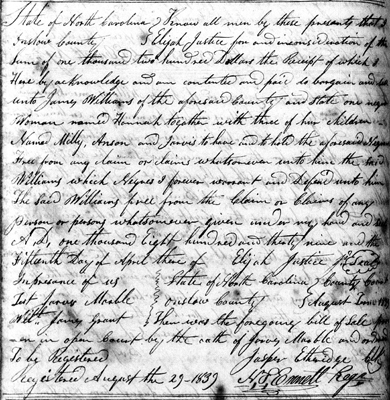 State of North Carolina } Know all men by these presents that I
Onslow County } Elijah Justice for and inconsideration of the
Sum of one thousand two hundred Dollars the Receipt of which I
Here by acknowledge and am contented and paid to bargain and
unto James Williams of the aforesaid County and State one negro
Woman named Hannah together with three of her children
Named Milly, Anson and Jarvis to have and to hold the aforesaid Negroes
Free from any claim or claims whatsomever unto him the said
Williams which Negroes I forever worrant and defend unto him
The said Williams free from the Claim or Claims of any
person or persons whatsomever given under my hand and
A.D. one thousand Eight hundred and thirty nine and the
Fifteenth Day of April three of Elijah Justice Seal
In presance of us } State of North Carolina } County Court
Test James Marble } Onslow County } August Term 1839
Willm James Grant } Then was the foregoing bill of Sale
en in open Court by the oath of James Marble and
To be Registered Jasper Etheridge Clk
Registered August the 29 1839